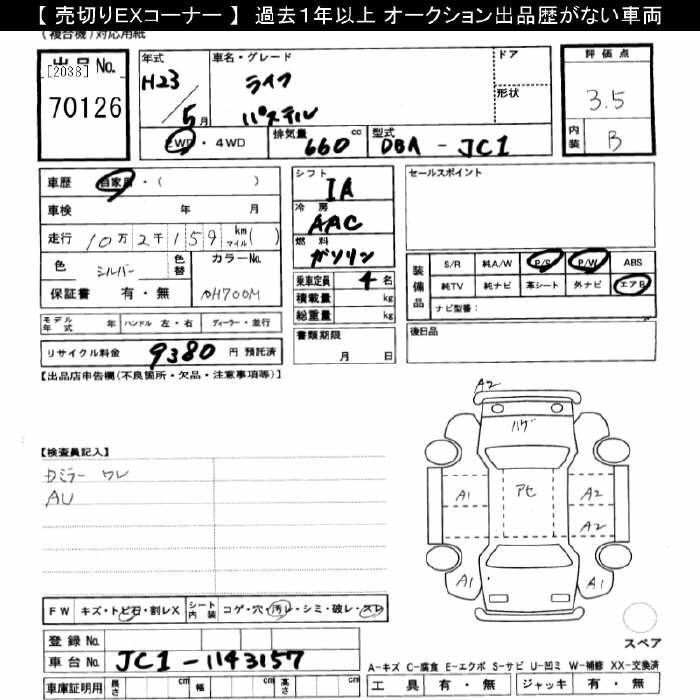 【 売切りEXコーナー 】 過去1年以上 オークション出品歴がない車両
(複合機)対応用紙
出品 No.
[2038]
70126
年式
H23 / 5月
車名・グレード
ライフ
パステル
ドア
形状
2WD・4WD
排気量 660 cc
型式 DBA - JC1
評価点
3.5
内装 B
車歴 自家用・( )
車検 年 月
走行 10万2千159 km マイル( )
色 シルバー 色替 カラーNo.
保証書 有・無 NH700M
モデル年式 年 ハンドル 左・右 ディーラー・並行
リサイクル料金 9380 円 預託済
シフト
IA
冷房
AAC
燃料
ガソリン
乗車定員 4 名
積載量 kg
総重量 kg
書類期限
月 日
セールスポイント
装備品
S/R 純A/W P/S P/W ABS
純TV 純ナビ 革シート 外ナビ エアB
ナビ型番:
後日品
【出品店申告欄(不良個所・欠品・注意事項等)】
【検査員記入】
カミラー ワレ
AU
A2
ハゲ
A1 アセ A2
A2
A1 A1
スペア
FW キズ・トビ石・割レX シート内装 コゲ・穴・汚レ・シミ・破レ・スレ
登録 No.
車台 No. JC1-1143157
車庫証明用 長さ cm 幅 cm 高さ cm
A-キズ C-腐食 E-エクボ S-サビ U-凹ミ W-補修 XX-交換済
工具 有・無 ジャッキ 有・無